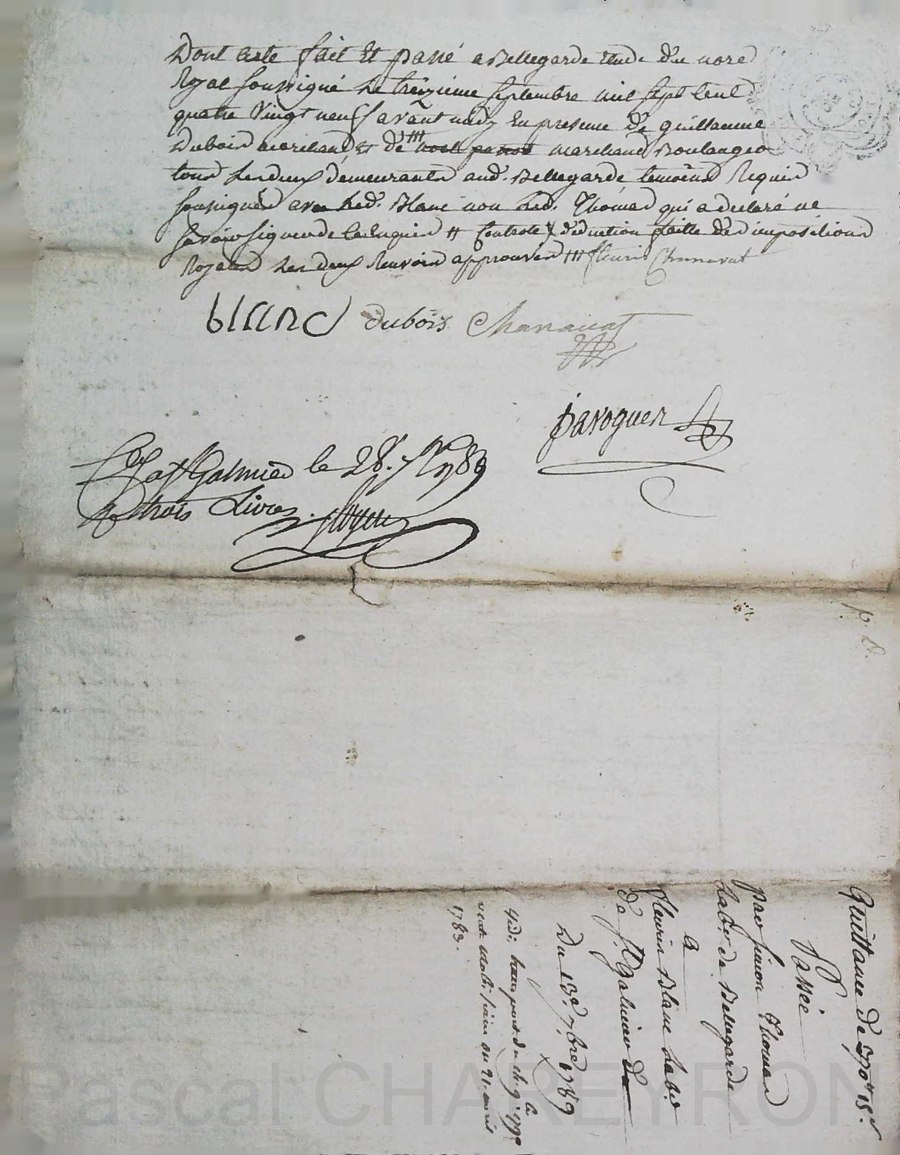 Dont acte fait et passé a Bellegarde Etude du nore
Royal soussigné le treizieme septembre mil sept cent
quatre vingt neuf avant midy En presence de guillaume
Dubois marchand et de //// marchand Boulanger
tous les deux demeurants aud. Bellegarde temoins Requis
soussignés avec led. Blanc non led. Thomas qui a declaré ne
savoir signer de ce Enquis # deduction faitte des impositions
Royales les deux Renvois approuvés //// fleuri Chanavat
blanc dubois Chanavat
paroguez
a St Galmier le 28. 7bre 1789
trois Livres
Quittance de
Passée
par Simon Thomas
Labr. de Bellegarde
a
fleurin Blanc Labr.
de St Galmier
Du 13e. 7bre 1789
1783.
Pascal CHAREYRON